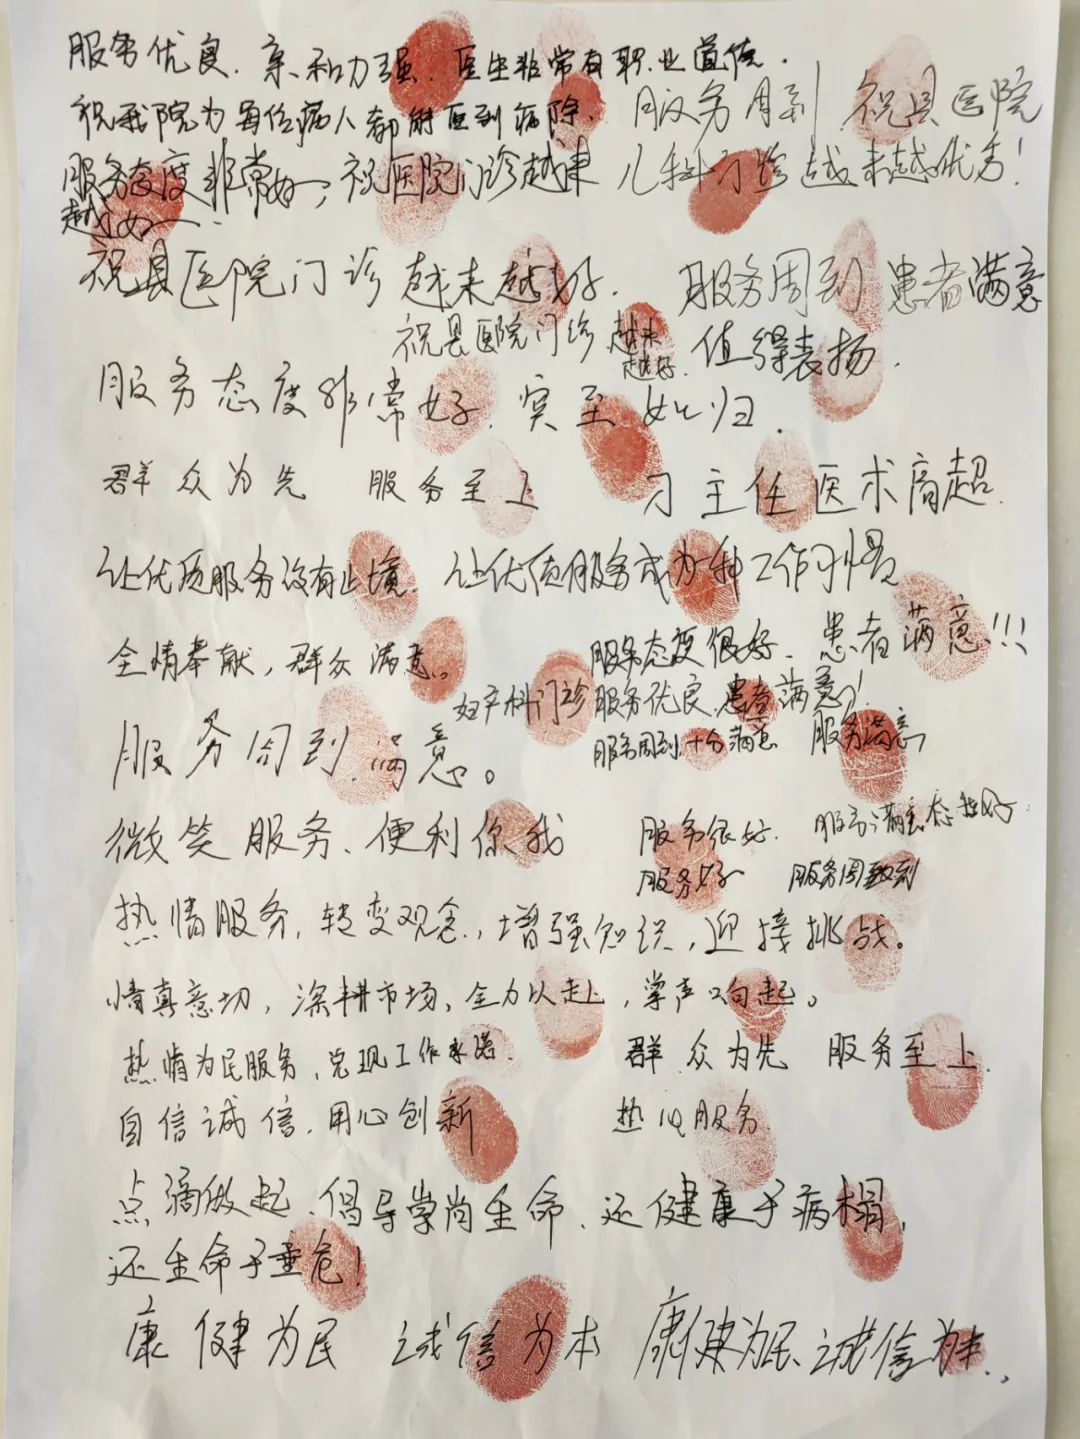 服务优良.亲和力强.医生非常有职业道德.
祝我院为每位病人都能医到病除.
服务周到 祝县医院
儿科门诊越来越优秀!
服务态度非常好,祝医院门诊越来
越好
祝县医院门诊越来越好.
服务周到患者满意
值得表扬.
祝县医院门诊越来
越好.
服务态度非常好.宾至如归.
群众为先 服务至上
刁主任医术高超
让优质服务没有止境.让优质服务成为种工作习惯
全情奉献,群众满意。
服务态度很好.患者满意!!!
妇产科门诊服务优良.患者满意!
服务周到.满意。
服务周到.十分满意 服务满意
微笑服务、便利你我
服务很好.
服务好 服务周到
热情服务,转变观念,增强知识,迎接挑战。
情真意切,深耕市场、全力以赴,掌声响起。
热情为民服务、兑现工作承诺.
群众为先 服务至上.
自信诚信.用心创新
热心服务
点滴做起、倡导崇尚生命、还健康于病榻,
还生命于垂危!
康健为民 诚信为本 康健为民、诚信为本.